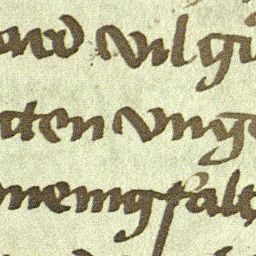 ward vil gu
tten vnge
menigfalt